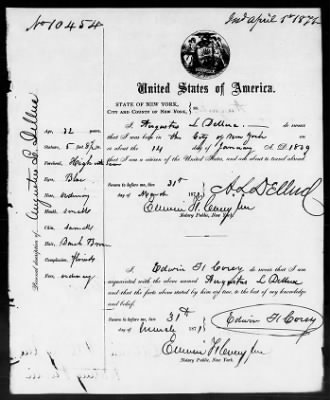 No 10454
Ind April 5th 1872
United States of America.
STATE OF NEW YORK,
CITY AND COUNTY OF NEW YORK,
I, Augustus L Dellue do swear
that I was born in the City of New York
on or about the 14 day of January A.D. 1839
that I am a citizen of the United States, and am about to travel abroad
Sworn to before me, this 31st
day of March 187
A. L. Dellud
Edwin H. Corey Jun
Notary Public, New York.
I, Edwin H Corey do swear that I am
acquainted with the above named Augustus L Dellue
and that the facts above stated by him are true, to the best of my knowledge
and belief.
Sworn to before me, this 31st
day of March 187
Edwin H Corey
Edwin H Corey Jun
Notary Public, New York.
Personal description of Augustus L Dellue
Age, 32 years
Stature, 5 feet 8 1/2 in
Forehead, High
Eyes, Blue
Nose, ordinary
Mouth, small
Chin, small
Hair, Dark Brown
Complexion, florid
Face, ordinary